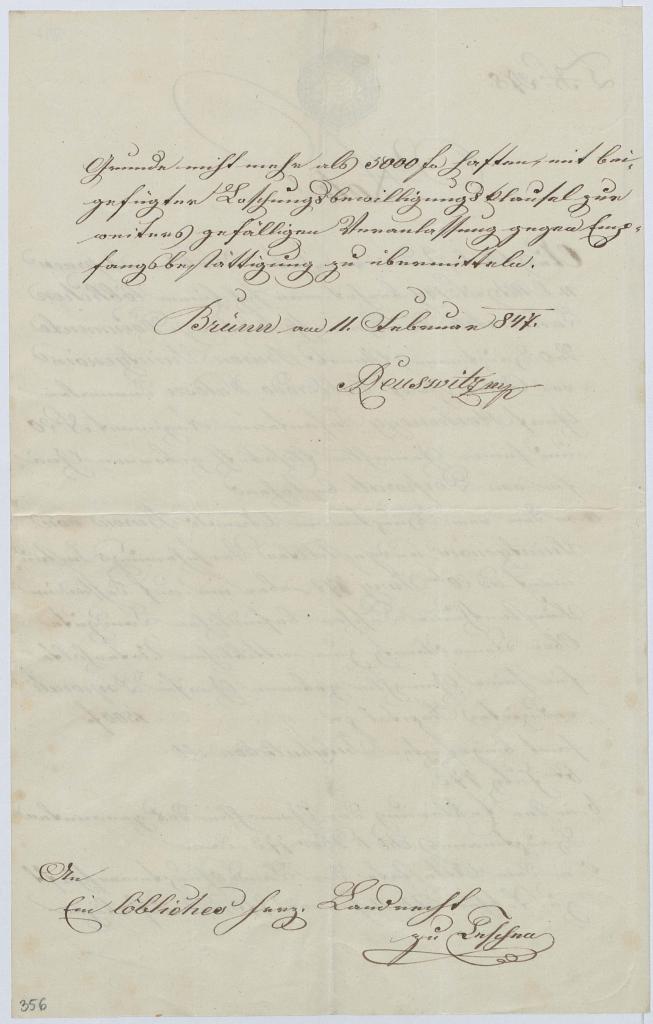 Grunde nicht mehr als 5000 f haften, mit bei-
gefügter Löschungsbewilligungsklausel zur
weiters gefälligen Veranlassung gegen Emp-
fangsbestättigung zu übermitteln.
Brünn am 11. Februar 847.
An
Ein löbliches herz. Landrecht
zu Teschen
356